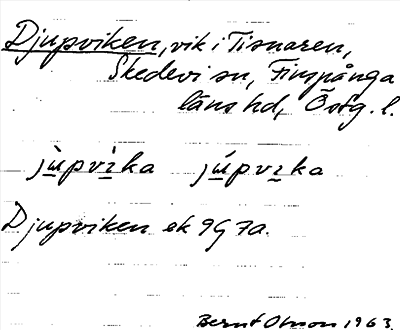 Djupviken, vik i Tisnaren,
Skedevi sn, Finspånga
läns hd, Östg. l.
jùpvìka júpvıka
Djupviken ek 9G 7a.
Bernt Olsson 1963.